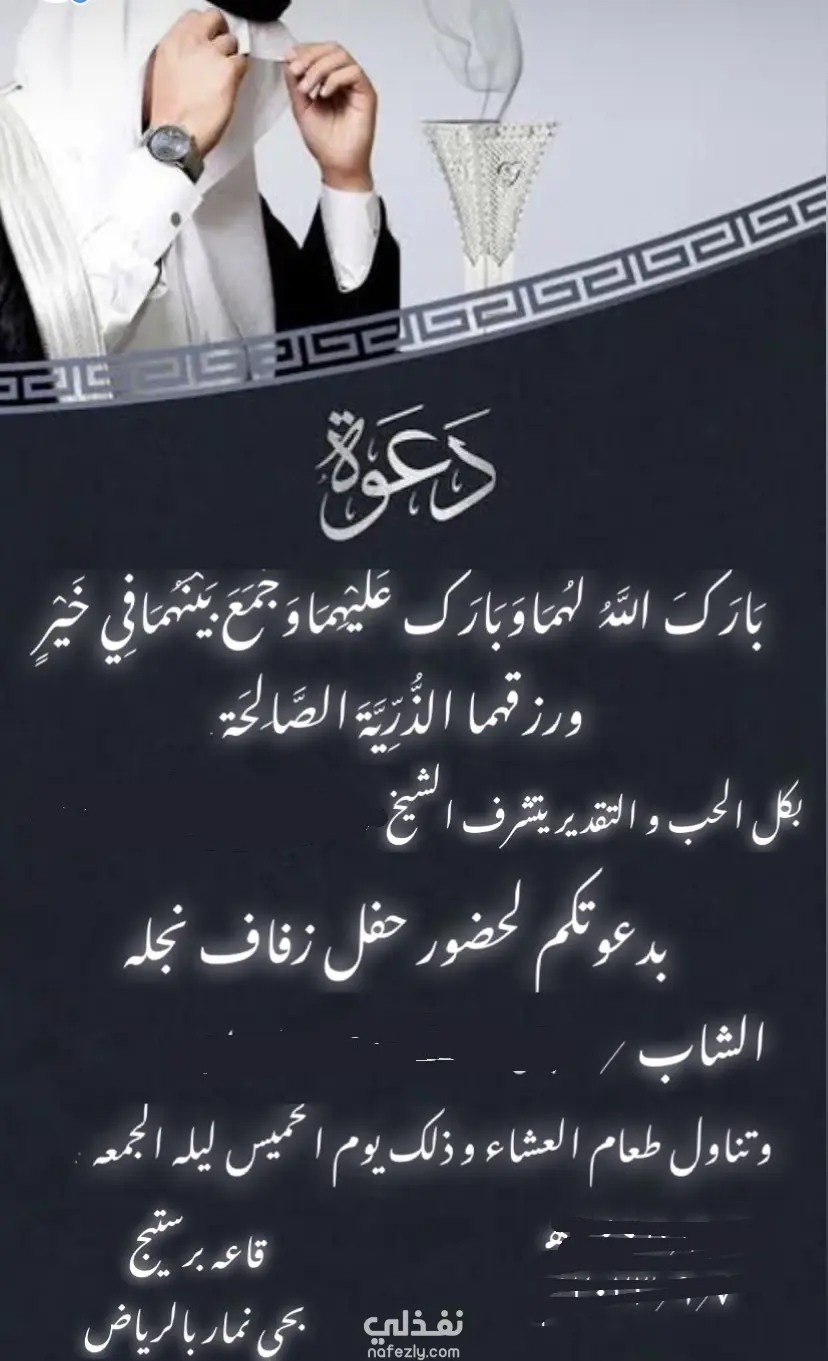 دَعوَة
بَارَكَ اللَّهُ لَهُمَا وَبَارَكَ عَلَيْهِمَا وَجَمَعَ بَيْنَهُمَا فِي خَيْرٍ
ورزقهما الذُّرِّيَّةَ الصَّالِحَة
بكل الحب و التقدير يتشرف الشيخ
بدعوتكم لحضور حفل زفاف نجله
الشاب /
وتناول طعام العشاء وذلك يوم الخميس ليله الجمعه
هـ
قاعه برستيج
بحي نمار بالرياض
نفذلي
nafezly.com